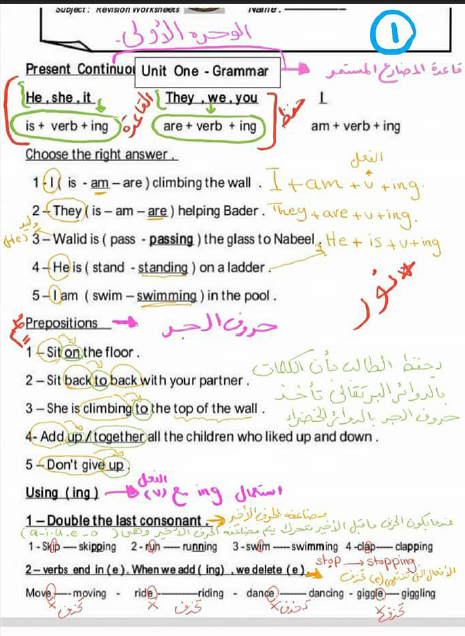 Subject : Revision Worksheets Name : 
الوحدة الأولى.
1
Present Continuou Unit One - Grammar
قاعدة المضارع المستمر
He , she , it They , we , you I
is + verb + ing القاعدة are + verb + ing حفظ am + verb + ing
Choose the right answer .
الفعل
1 - I ( is - am – are ) climbing the wall . I + am + v + ing.
2 – They ( is – am – are ) helping Bader . They + are + v + ing.
وليد (He)
3 – Walid is ( pass - passing ) the glass to Nabeel . He + is + v + ing
4 – He is ( stand - standing ) on a ladder .
5 – I am ( swim – swimming ) in the pool .
*نور
Prepositions حروف الجر
1 – Sit on the floor .
2 – Sit back to back with your partner .
يحفظ الطالب بأن الكلمات
3 – She is climbing to the top of the wall .
بالدوائر البرتقالي تأخذ
حروف الجر بالدوائر الخضراء
4- Add up / together all the children who liked up and down .
5 – Don't give up .
Using ( ing ) الفعل (v) استعمال ing مع
1 – Double the last consonant . مضاعفة الحرف الأخير
عندما يكون الحرف ماقبل الأخير متحرك يتم مضاعفة الحرف الأخير وهي (a - i - u - e - o)
1 - Skip ---- skipping 2 - run ---- running 3 -swim----- swimming 4 -clap---- clapping
stop → stopping
2 – verbs end in ( e ) . When we add ( ing ) , we delete ( e ) . الأفعال التي تنتهي (e) تحذف
Move -----moving - ride ---------riding - dance ------ dancing - giggle---- giggling
تحذف تحذف تحذف تحذف